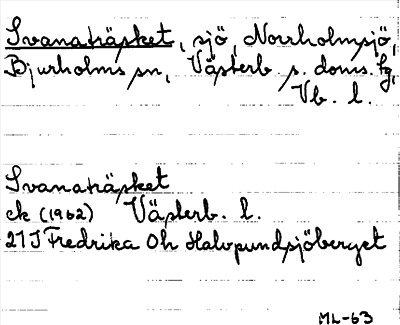 Svanaträsket, sjö, Norrholmsjö,
Bjurholms sn, Västerb. s. doms. fg,
Vb. l.
Svanaträsket
ek (1962) Västerb. l.
21J Fredrika Oh Halvpundsjöberget
ML-63